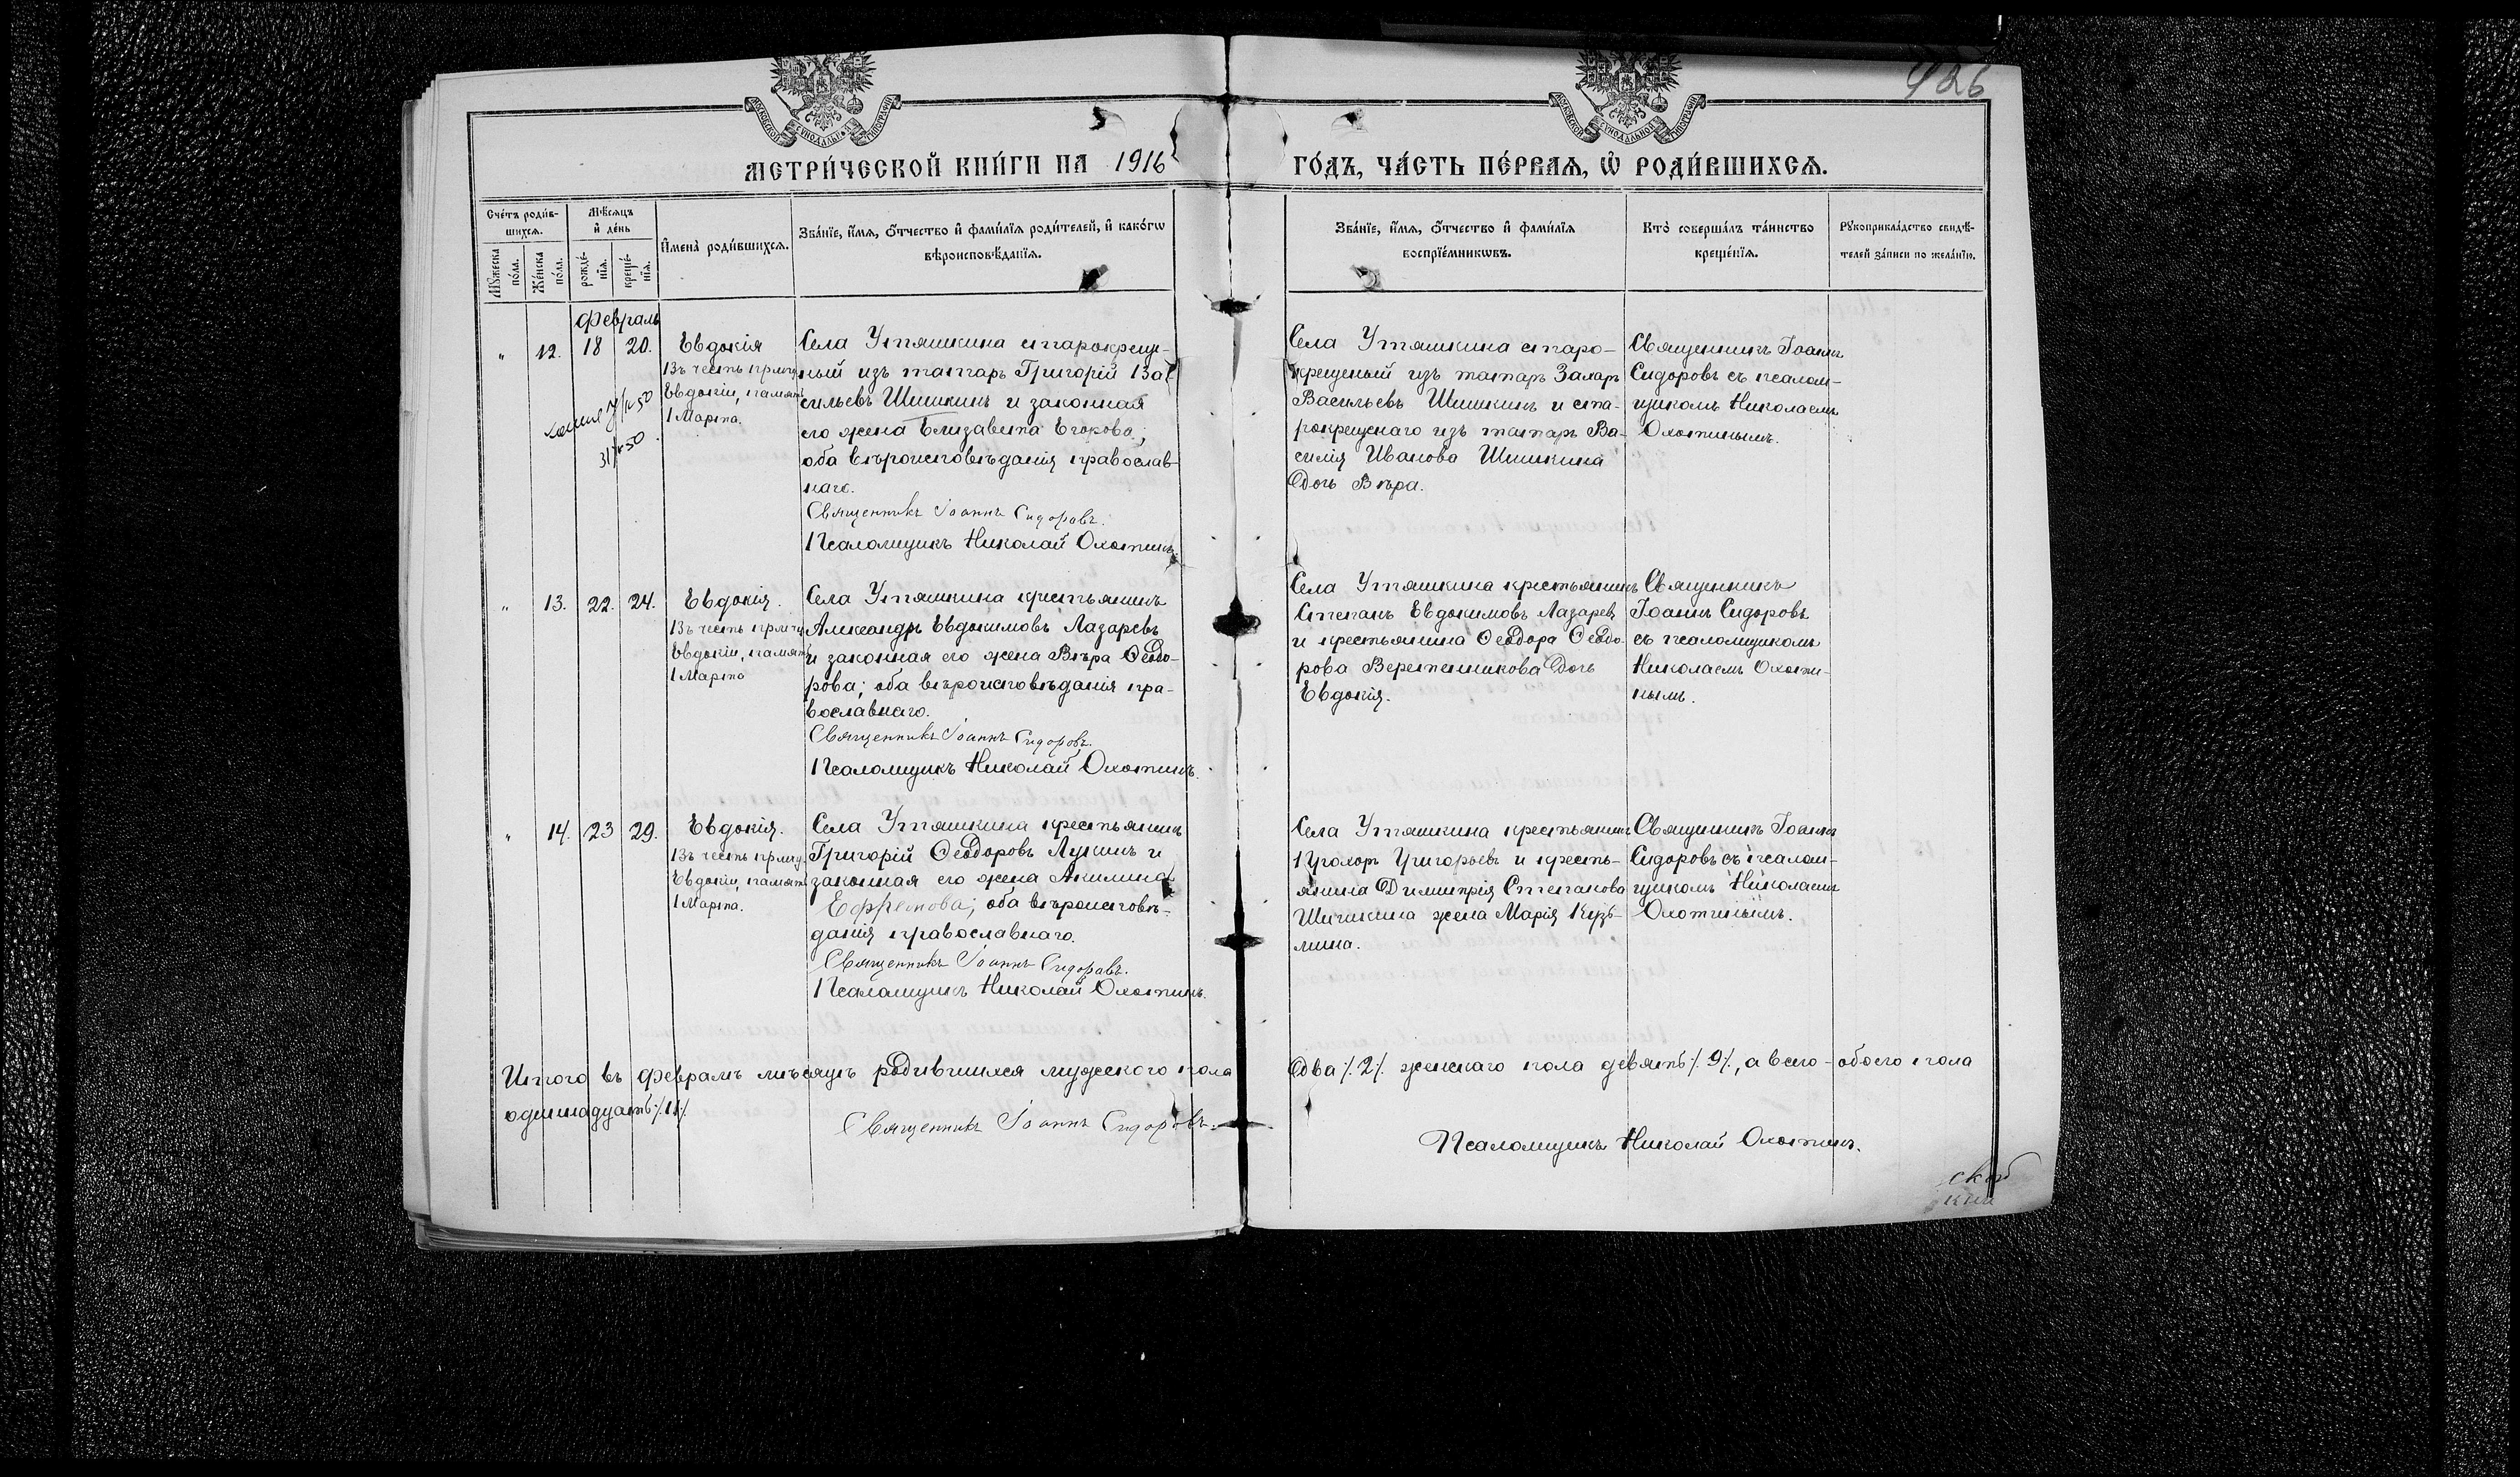 426
МОСКОВСКОЙ СѴНОДАЛЬНОЙ ТИПОГРАФІИ
МОСКОВСКОЙ СѴНОДАЛЬНОЙ ТИПОГРАФІИ
МЕТРИ́ЧЕСКОЙ КНИ́ГИ НА 1916
ГО́ДЪ, ЧА́СТЬ ПЕ́РВАѦ, Ѽ РОДИ́ВШИХСѦ.
Сче́тъ роди́в-
шихсѧ.
Мꙋ́жеска по́ла.
Же́нска по́ла.
Мѣ́сѧцъ
и҆ де́нь
рожде́-
нїѧ.
креще́-
нїѧ.
И҆мена̀ роди́вшихсѧ.
Зва́нїе, и҆́мѧ, ѻ҆́тчество и҆ фами́лїѧ роди́телей, и҆ како́гѡ
вѣроисповѣ́данїѧ.
Зва́нїе, и҆́мѧ, ѻ҆́тчество и҆ фами́лїѧ
воспрїе́мникѡвъ.
Кто̀ соверша́лъ та́инство
креще́нїѧ.
Рꙋкоприкла́дство свидѣ́-
телей за́писи по жела́нїю.
Февраль
" 12. 18 20.
Евдокія
Въ честь прмчц.
Евдокіи, память
1 Марта.
Села Утяшкина старокреще-
ный изъ татаръ Григорій Ва-
сильевъ Шишкинъ и законная
его жена Елизавета Егорова;
оба вѣроисповѣданія православ-
наго.
Священникъ Іоаннъ Сидоровъ.
Псаломщикъ Николай Охотинъ.
Села Утяшкина старо-
крещеный изъ татаръ Захаръ
Васильевъ Шишкинъ и ста-
рокрещенаго изъ татаръ Ва-
силія Иванова Шишкина
дочь Вѣра.
Священникъ Іоаннъ
Сидоровъ съ псалом-
щикомъ Николаемъ
Охотинымъ.
" 13. 22. 24.
Евдокія.
Въ честь прмчц.
Евдокіи, память
1 Марта
Села Утяшкина крестьянинъ
Александръ Евдокимовъ Лазаревъ
и законная его жена Вѣра Ѳеодо-
рова; оба вѣроисповѣданія пра-
вославнаго.
Священникъ Іоаннъ Сидоровъ.
Псаломщикъ Николай Охотинъ.
Села Утяшкина крестьянинъ
Степанъ Евдокимовъ Лазаревъ
и крестьянина Ѳеодора Ѳеодо-
рова Веретенникова дочь
Евдокія.
Священникъ
Іоаннъ Сидоровъ
съ псаломщикомъ
Николаемъ Охоти-
нымъ.
" 14. 23 29.
Евдокія.
Въ честь прмчц.
Евдокіи, память
1 Марта.
Села Утяшкина крестьянинъ
Григорій Ѳеодоровъ Лукинъ и
законная его жена Акилина
Ефремова; оба вѣроисповѣ-
данія православнаго.
Священникъ Іоаннъ Сидоровъ.
Псаломщикъ Николай Охотинъ.
Села Утяшкина крестьянинъ
Григорьевъ и кресть-
янина Димитрія Степанова
Шишкина жена Марія Кузь-
мина.
Священникъ Іоаннъ
Сидоровъ съ псалом-
щикомъ Николаемъ
Охотинымъ.
Итого въ Февралѣ мѣсяцѣ родившихся мужескаго пола
два ⁒ 2 ⁒ женскаго пола девять ⁒ 9 ⁒, а всего обоего пола
одиннадцать ⁒ 11 ⁒
Священникъ Іоаннъ Сидоровъ.
Псаломщикъ Николай Охотинъ.